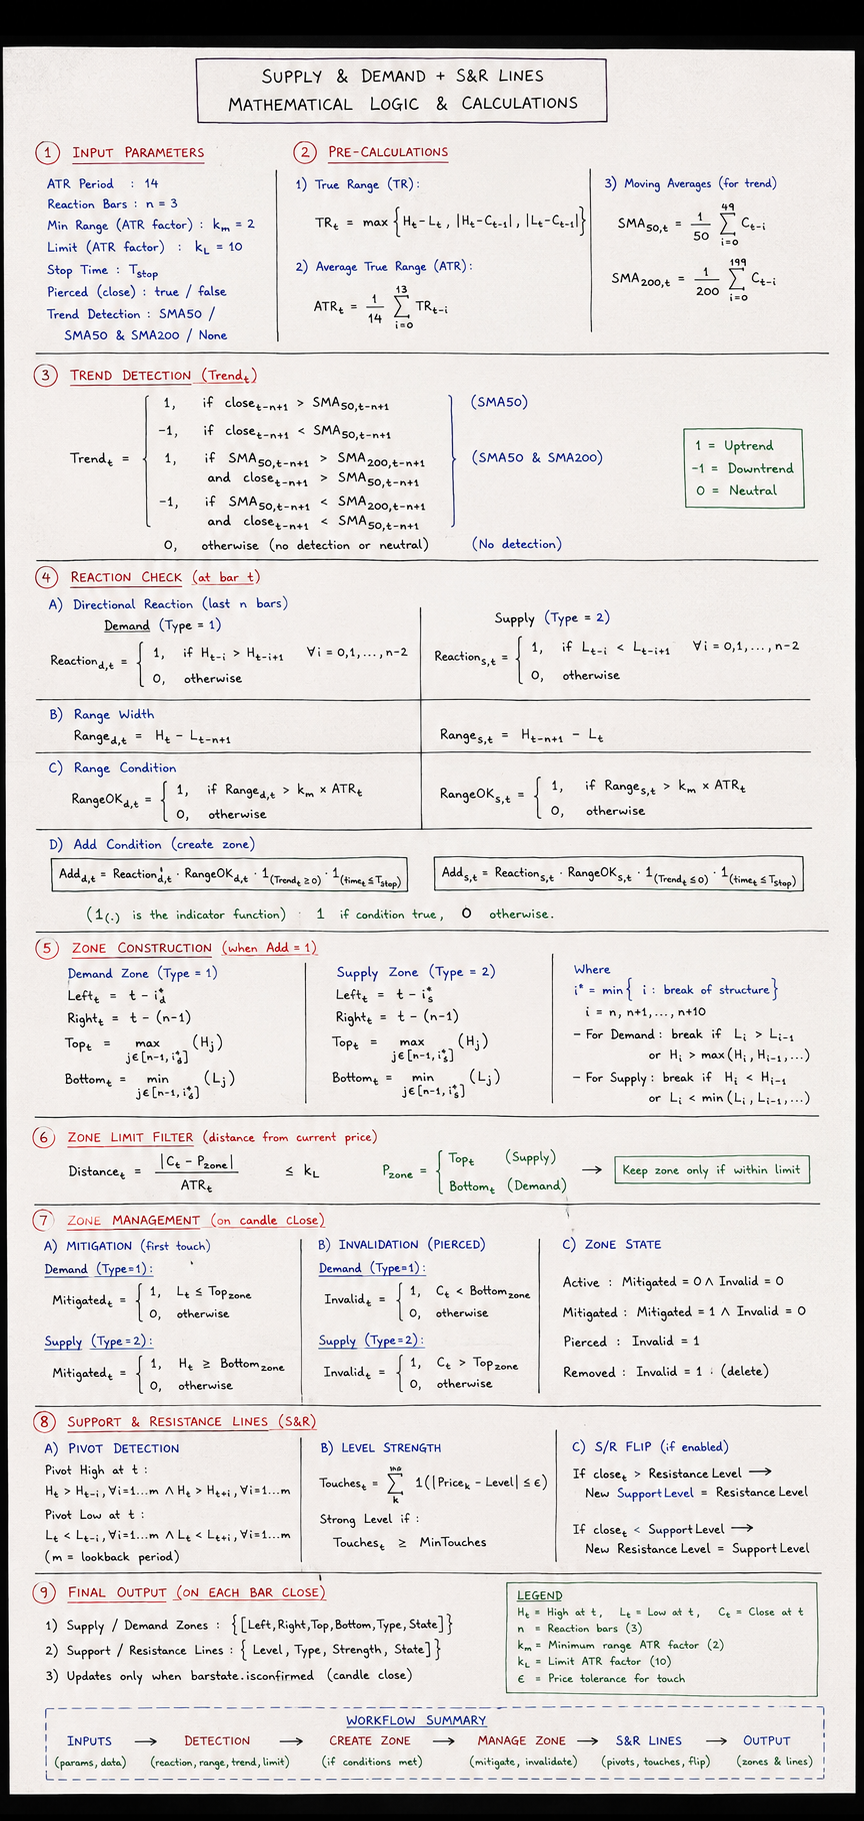 SUPPLY & DEMAND + S&R LINES
MATHEMATICAL LOGIC & CALCULATIONS
① INPUT PARAMETERS
ATR Period : 14
Reaction Bars : n = 3
Min Range (ATR factor) : kₘ = 2
Limit (ATR factor) : k_L = 10
Stop Time : T_stop
Pierced (close) : true / false
Trend Detection : SMA50 /
SMA50 & SMA200 / None
② PRE-CALCULATIONS
1) True Range (TR) :
TR_t = max { H_t-L_t , |H_t-C_t-1| , |L_t-C_t-1| }
2) Average True Range (ATR) :
ATR_t = 1/14 ∑_{i=0}^{13} TR_t-i
3) Moving Averages (for trend)
SMA_50,t = 1/50 ∑_{i=0}^{49} C_t-i
SMA_200,t = 1/200 ∑_{i=0}^{199} C_t-i
③ TREND DETECTION (Trend_t)
Trend_t =
1, if close_t-n+1 > SMA_50,t-n+1 (SMA50)
-1, if close_t-n+1 < SMA_50,t-n+1
1, if SMA_50,t-n+1 > SMA_200,t-n+1 (SMA50 & SMA200)
and close_t-n+1 > SMA_50,t-n+1
-1, if SMA_50,t-n+1 < SMA_200,t-n+1
and close_t-n+1 < SMA_50,t-n+1
0, otherwise (no detection or neutral) (No detection)
1 = Uptrend
-1 = Downtrend
0 = Neutral
④ REACTION CHECK (at bar t)
A) Directional Reaction (last n bars)
Demand (Type = 1)
Reaction_d,t = { 1, if H_t-i > H_t-i+1 ∀i = 0,1,...,n-2
0, otherwise
Supply (Type = 2)
Reaction_s,t = { 1, if L_t-i < L_t-i+1 ∀i = 0,1,...,n-2
0, otherwise
B) Range Width
Range_d,t = H_t - L_t-n+1
Range_s,t = H_t-n+1 - L_t
C) Range Condition
RangeOK_d,t = { 1, if Range_d,t > kₘ × ATR_t
0, otherwise
RangeOK_s,t = { 1, if Range_s,t > kₘ × ATR_t
0, otherwise
D) Add Condition (create zone)
Add_d,t = Reaction_d,t · RangeOK_d,t · 1_(Trend_t ≥ 0) · 1_(time_t ≤ T_stop)
Add_s,t = Reaction_s,t · RangeOK_s,t · 1_(Trend_t ≤ 0) · 1_(time_t ≤ T_stop)
(1_(.) is the indicator function) · 1 if condition true, 0 otherwise.
⑤ ZONE CONSTRUCTION (when Add = 1)
Demand Zone (Type = 1)
Left_t = t - i*_d
Right_t = t - (n-1)
Top_t = max (H_j)
j∈[n-1, i*_d]
Bottom_t = min (L_j)
j∈[n-1, i*_d]
Supply Zone (Type = 2)
Left_t = t - i*_s
Right_t = t - (n-1)
Top_t = max (H_j)
j∈[n-1, i*_s]
Bottom_t = min (L_j)
j∈[n-1, i*_s]
Where
i* = min { i : break of structure }
i = n, n+1,..., n+10
- For Demand : break if L_i > L_i-1
or H_i > max (H_i, H_i-1,...)
- For Supply : break if H_i < H_i-1
or L_i < min (L_i, L_i-1,...)
⑥ ZONE LIMIT FILTER (distance from current price)
Distance_t = |C_t - P_zone| / ATR_t ≤ k_L
P_zone = { Top_t (Supply)
Bottom_t (Demand)
→ Keep zone only if within limit
⑦ ZONE MANAGEMENT (on candle close)
A) MITIGATION (first touch)
Demand (Type=1):
Mitigated_t = { 1, L_t ≤ Top_zone
0, otherwise
Supply (Type=2):
Mitigated_t = { 1, H_t ≥ Bottom_zone
0, otherwise
B) INVALIDATION (PIERCED)
Demand (Type=1):
Invalid_t = { 1, C_t < Bottom_zone
0, otherwise
Supply (Type=2):
Invalid_t = { 1, C_t > Top_zone
0, otherwise
C) ZONE STATE
Active : Mitigated = 0 ∧ Invalid = 0
Mitigated : Mitigated = 1 ∧ Invalid = 0
Pierced : Invalid = 1
Removed : Invalid = 1 : (delete)
⑧ SUPPORT & RESISTANCE LINES (S&R)
A) PIVOT DETECTION
Pivot High at t :
H_t > H_t-i, ∀i=1...m ∧ H_t > H_t+i, ∀i=1...m
Pivot Low at t :
L_t < L_t-i, ∀i=1...m ∧ L_t < L_t+i, ∀i=1...m
(m = lookback period)
B) LEVEL STRENGTH
Touches_t = ∑_k 1(|Price_k - Level| ≤ ε)
Strong Level if :
Touches_t ≥ MinTouches
C) S/R FLIP (if enabled)
If close_t > Resistance Level →
New Support Level = Resistance Level
If close_t < Support Level →
New Resistance Level = Support Level
⑨ FINAL OUTPUT (ON EACH BAR CLOSE)
1) Supply / Demand Zones : {[Left,Right,Top,Bottom,Type,State]}
2) Support / Resistance Lines : { Level, Type, Strength, State]}
3) Updates only when barstate.isconfirmed (candle close)
LEGEND
H_t = High at t, L_t = Low at t, C_t = Close at t
n = Reaction bars (3)
kₘ = Minimum range ATR factor (2)
k_L = Limit ATR factor (10)
ε = Price tolerance for touch
WORKFLOW SUMMARY
INPUTS → DETECTION → CREATE ZONE → MANAGE ZONE → S&R LINES → OUTPUT
(params, data) (reaction, range, trend, limit) (if conditions met) (mitigate, invalidate) (pivots, touches, flip) (zones & lines)